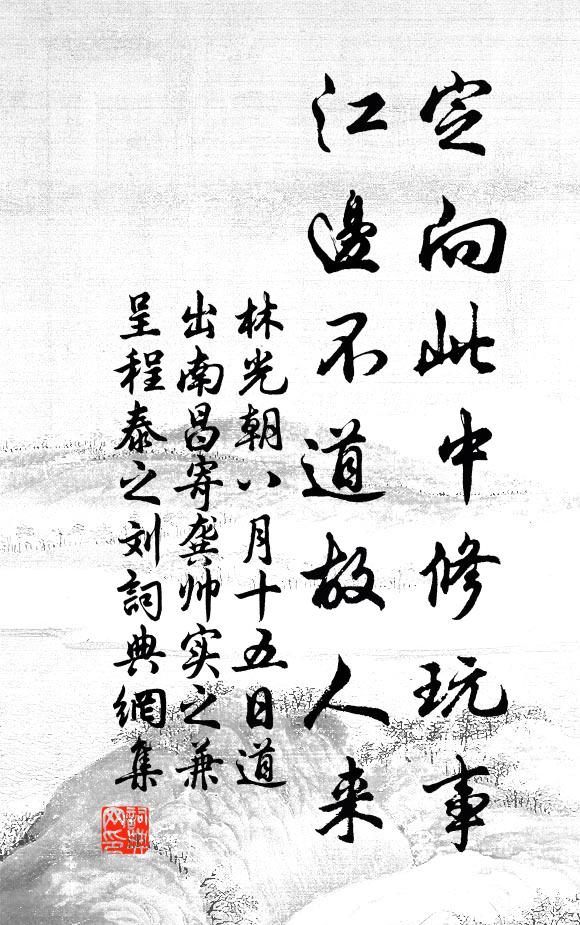 定向此中修玩事
江邊不道故人来
林光朝八月十五日道
出南昌寄龚帅实之兼
呈程泰之刘詞典網集